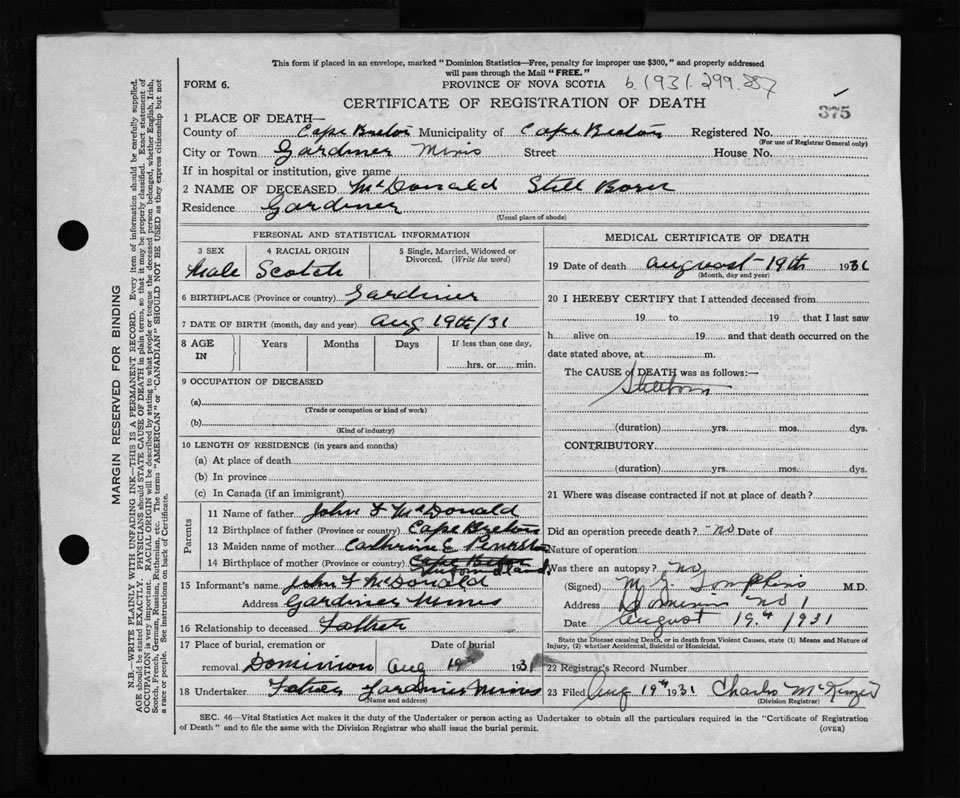 This form if placed in an envelope, marked "Dominion Statistics—Free, penalty for improper use $300," and properly addressed
will pass through the Mail "FREE."
FORM 6. PROVINCE OF NOVA SCOTIA b. 1931. 299.857
CERTIFICATE OF REGISTRATION OF DEATH 375
1 PLACE OF DEATH—
County of Cape Breton Municipality of Cape Breton Registered No.
(For use of Registrar General only)
City or Town Gardiner Mines Street House No.
If in hospital or institution, give name
2 NAME OF DECEASED McDonald Still Born
Residence Gardiner
(Usual place of abode)
PERSONAL AND STATISTICAL INFORMATION
3 SEX 4 RACIAL ORIGIN 5 Single, Married, Widowed or
Divorced. (Write the word)
Male Scotch
6 BIRTHPLACE (Province or country) Gardiner
7 DATE OF BIRTH (month, day and year) Aug 19th/31
8 AGE IN Years Months Days If less than one day,
hrs. or min.
9 OCCUPATION OF DECEASED
(a)
(Trade or occupation or kind of work)
(b)
(Kind of industry)
10 LENGTH OF RESIDENCE (in years and months)
(a) At place of death
(b) In province
(c) In Canada (if an immigrant)
Parents
11 Name of father John F McDonald
12 Birthplace of father (Province or country) Cape Breton
13 Maiden name of mother Cathrine E
14 Birthplace of mother (Province or country) Cape Breton
15 Informant's name John F McDonald
Address Gardiner Mines
16 Relationship to deceased Father
17 Place of burial, cremation or Date of burial
removal Dominion Aug 19th 1931
18 Undertaker Father Gardiner Mines
(Name and address)
MEDICAL CERTIFICATE OF DEATH
19 Date of death August 19th 1931
(Month, day and year)
20 I HEREBY CERTIFY that I attended deceased from
19 to 19 that I last saw
h alive on 19 and that death occurred on the
date stated above, at m.
The CAUSE of DEATH was as follows:—
Stillborn
(duration) yrs. mos. dys.
CONTRIBUTORY.
(duration) yrs. mos. dys.
21 Where was disease contracted if not at place of death?
Did an operation precede death? no Date of
Nature of operation
Was there an autopsy? no
(Signed) M. G. Tompkins M.D.
Address Dominion No 1
Date August 19th 1931
State the Disease causing Death, or in death from Violent Causes, state (1) Means and Nature of
Injury, (2) whether Accidental, Suicidal or Homicidal.
22 Registrar's Record Number
23 Filed Aug 19th 1931 Charles McKenzie
(Division Registrar)
SEC. 46—Vital Statistics Act makes it the duty of the Undertaker or person acting as Undertaker to obtain all the particulars required in the "Certificate of Registration
of Death" and to file the same with the Division Registrar who shall issue the burial permit. (OVER)
MARGIN RESERVED FOR BINDING
N.B.—WRITE PLAINLY WITH UNFADING INK—THIS IS A PERMANENT RECORD. Every item of information should be carefully supplied.
AGE should be stated EXACTLY. PHYSICIANS should STATE CAUSE OF DEATH in plain terms, so that it may be properly classified. Exact statement of
OCCUPATION is very important. RACIAL ORIGIN will be described by stating to what people or tongue the deceased person belonged, whether English, Irish,
Scotch, French, German, Russian, Ruthenian, etc. The terms "AMERICAN" or "CANADIAN" SHOULD NOT BE USED as they express citizenship but not
a race or people. See instructions on back of Certificate.